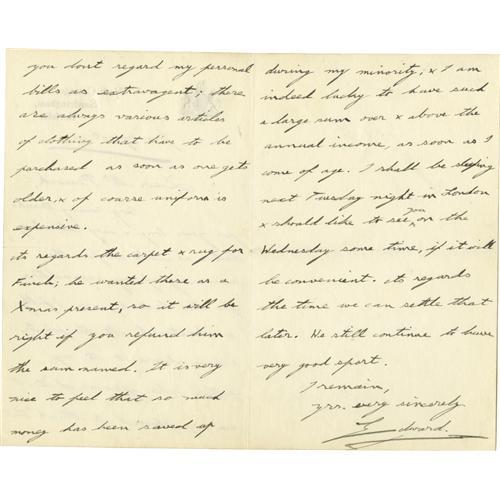 you don't regard my personal
bills as extravagent; there
are always various articles
of clothing that have to be
purchased as soon as one gets
older, & of course uniform is
expensive.
As regards the carpet & rug for
Finch; he wanted these as a
Xmas present, so it will be
right if you refund him
the sum named. It is very
nice to feel that so much
money has been saved up
during my minority; & I am
indeed lucky to have such
a large sum over & above the
annual income, as soon as I
come of age. I shall be sleeping
next Tuesday night in London
& should like to see you on the
Wednesday some time, if it will
be convenient. As regards
the time we can settle that
later. We still continue to have
very good sport.
I remain,
yrs. very sincerely
Edward.